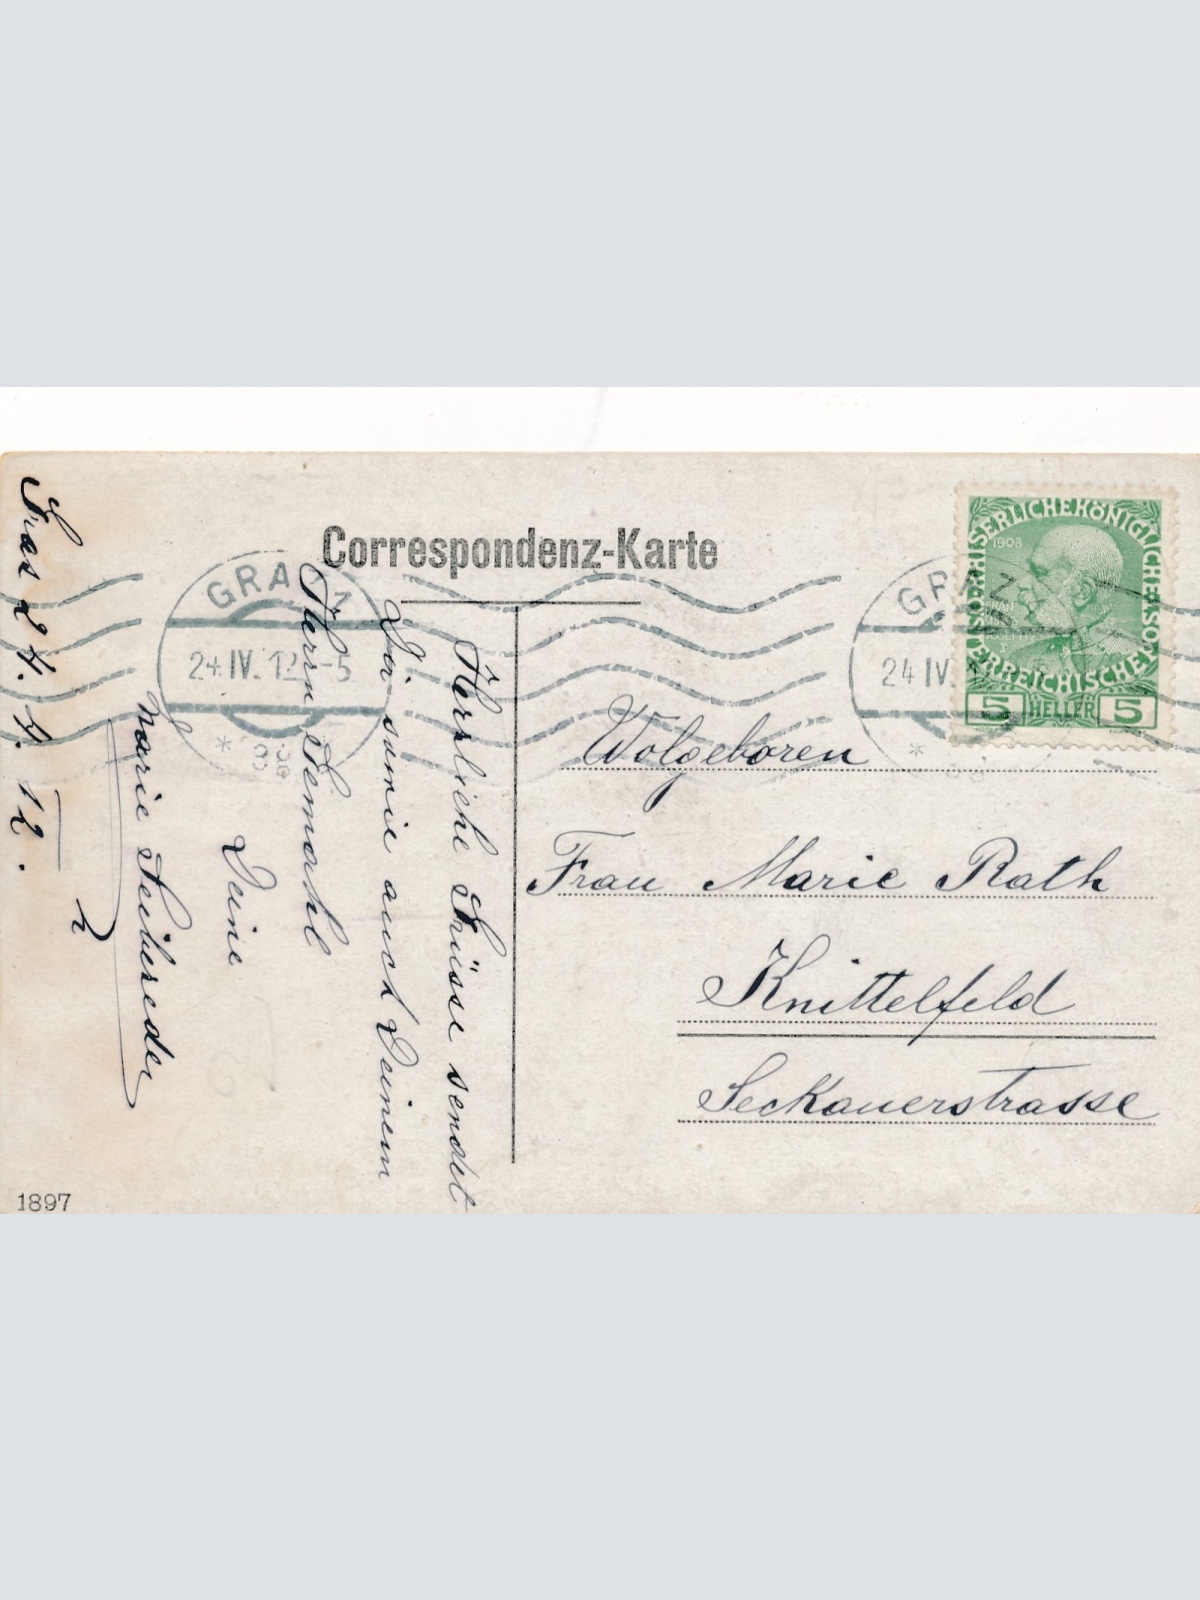 Correspondenz-Karte
GRAZ
24 IV. 12 -5
GRAZ
24 IV.
KAISERLICHE KÖNIGLICHE ÖSTERREICHISCHE
1908
5 HELLER 5
Wolgeboren
Frau Marie Rath
Knittelfeld
Seckauerstrasse
Herzliche Grüsse sendet
Dir sowie auch Deinem
Herrn Gemahl
Deine
Marie
Graz 24. 4. 12.
1897